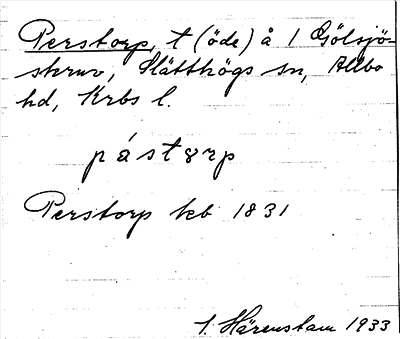 Perstorp, t (öde) å 1 Gölsjö-
skruv, Slätthögs sn, Allbo
hd, Krbs l.
pástorp
Perstorp kb 1831
1. Härenstam 1933